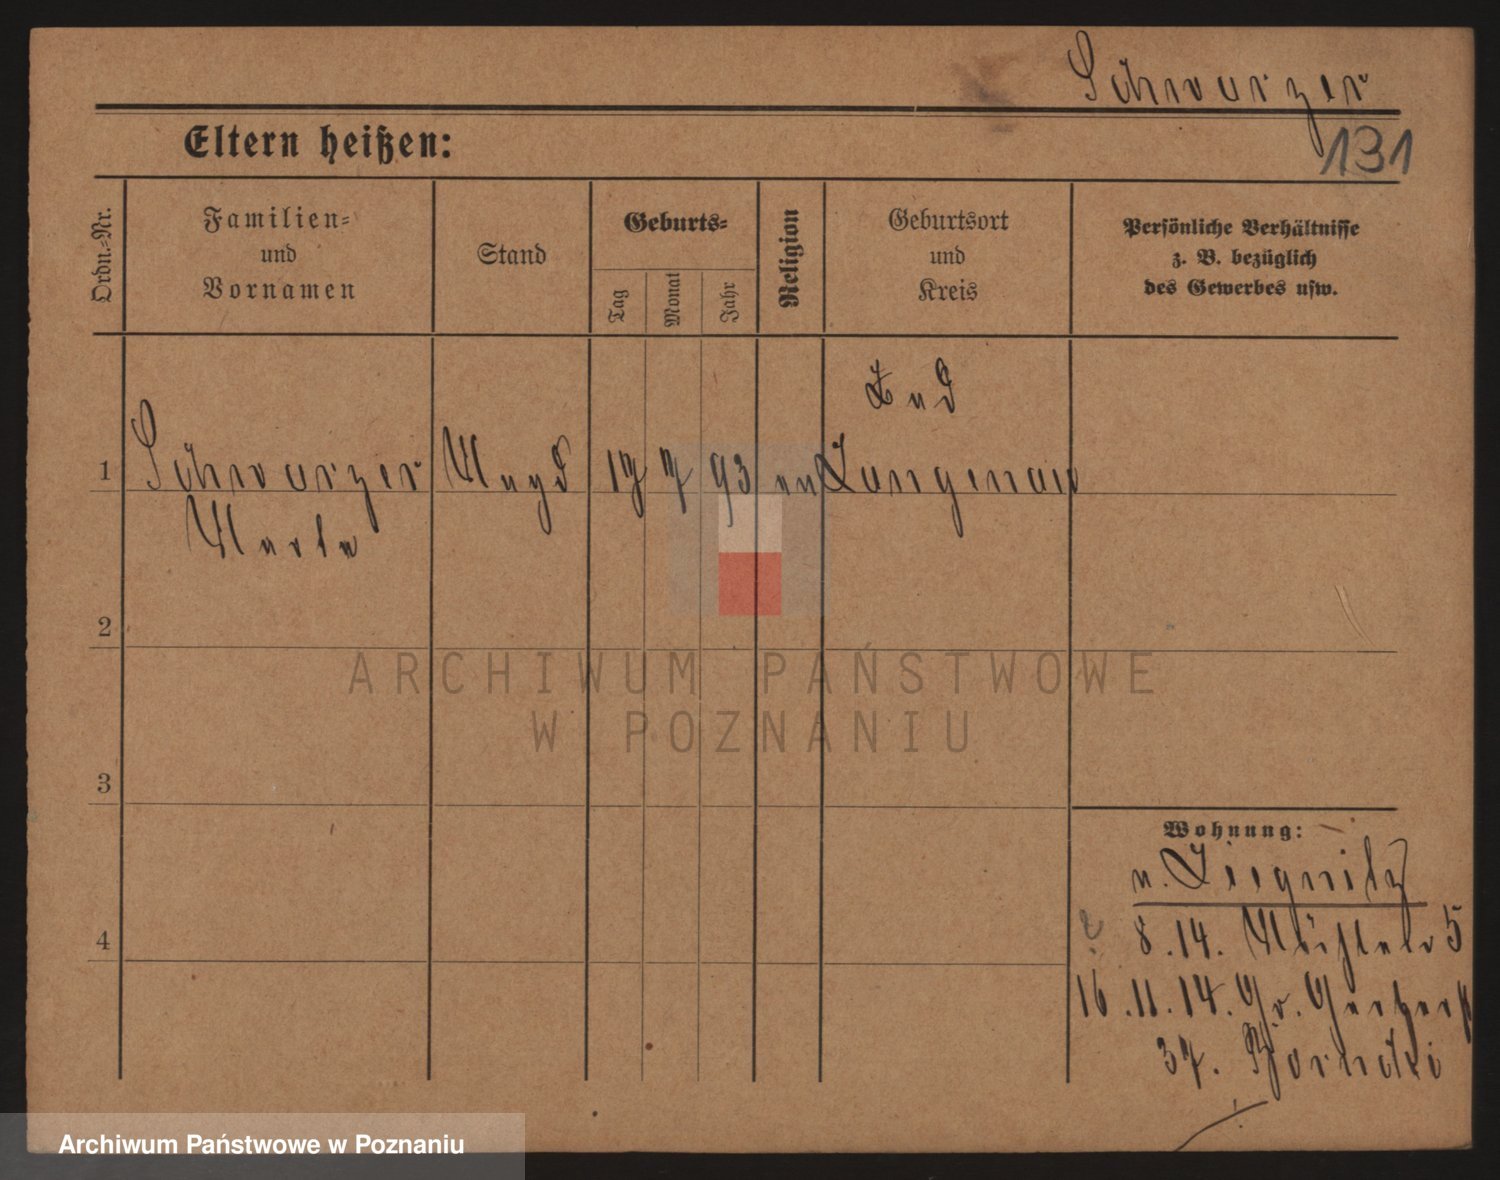 Schwarzer
131
Eltern heißen:
Ordn.=Nr.
Familien=
und
Vornamen
Stand
Geburts=
Tag
Monat
Jahr
Religion
Geburtsort
und
Kreis
Persönliche Verhältnisse
z. B. bezüglich
des Gewerbes usw.
1
Schwarzer Magd 17 7 93 Langenau
2
ARCHIWUM PAŃSTWOWE
W POZNANIU
3
Wohnung:
n. Liegnitz
4
8.14. 5
16.11.14. Gr. Gerberst
37.
Archiwum Państwowe w Poznaniu